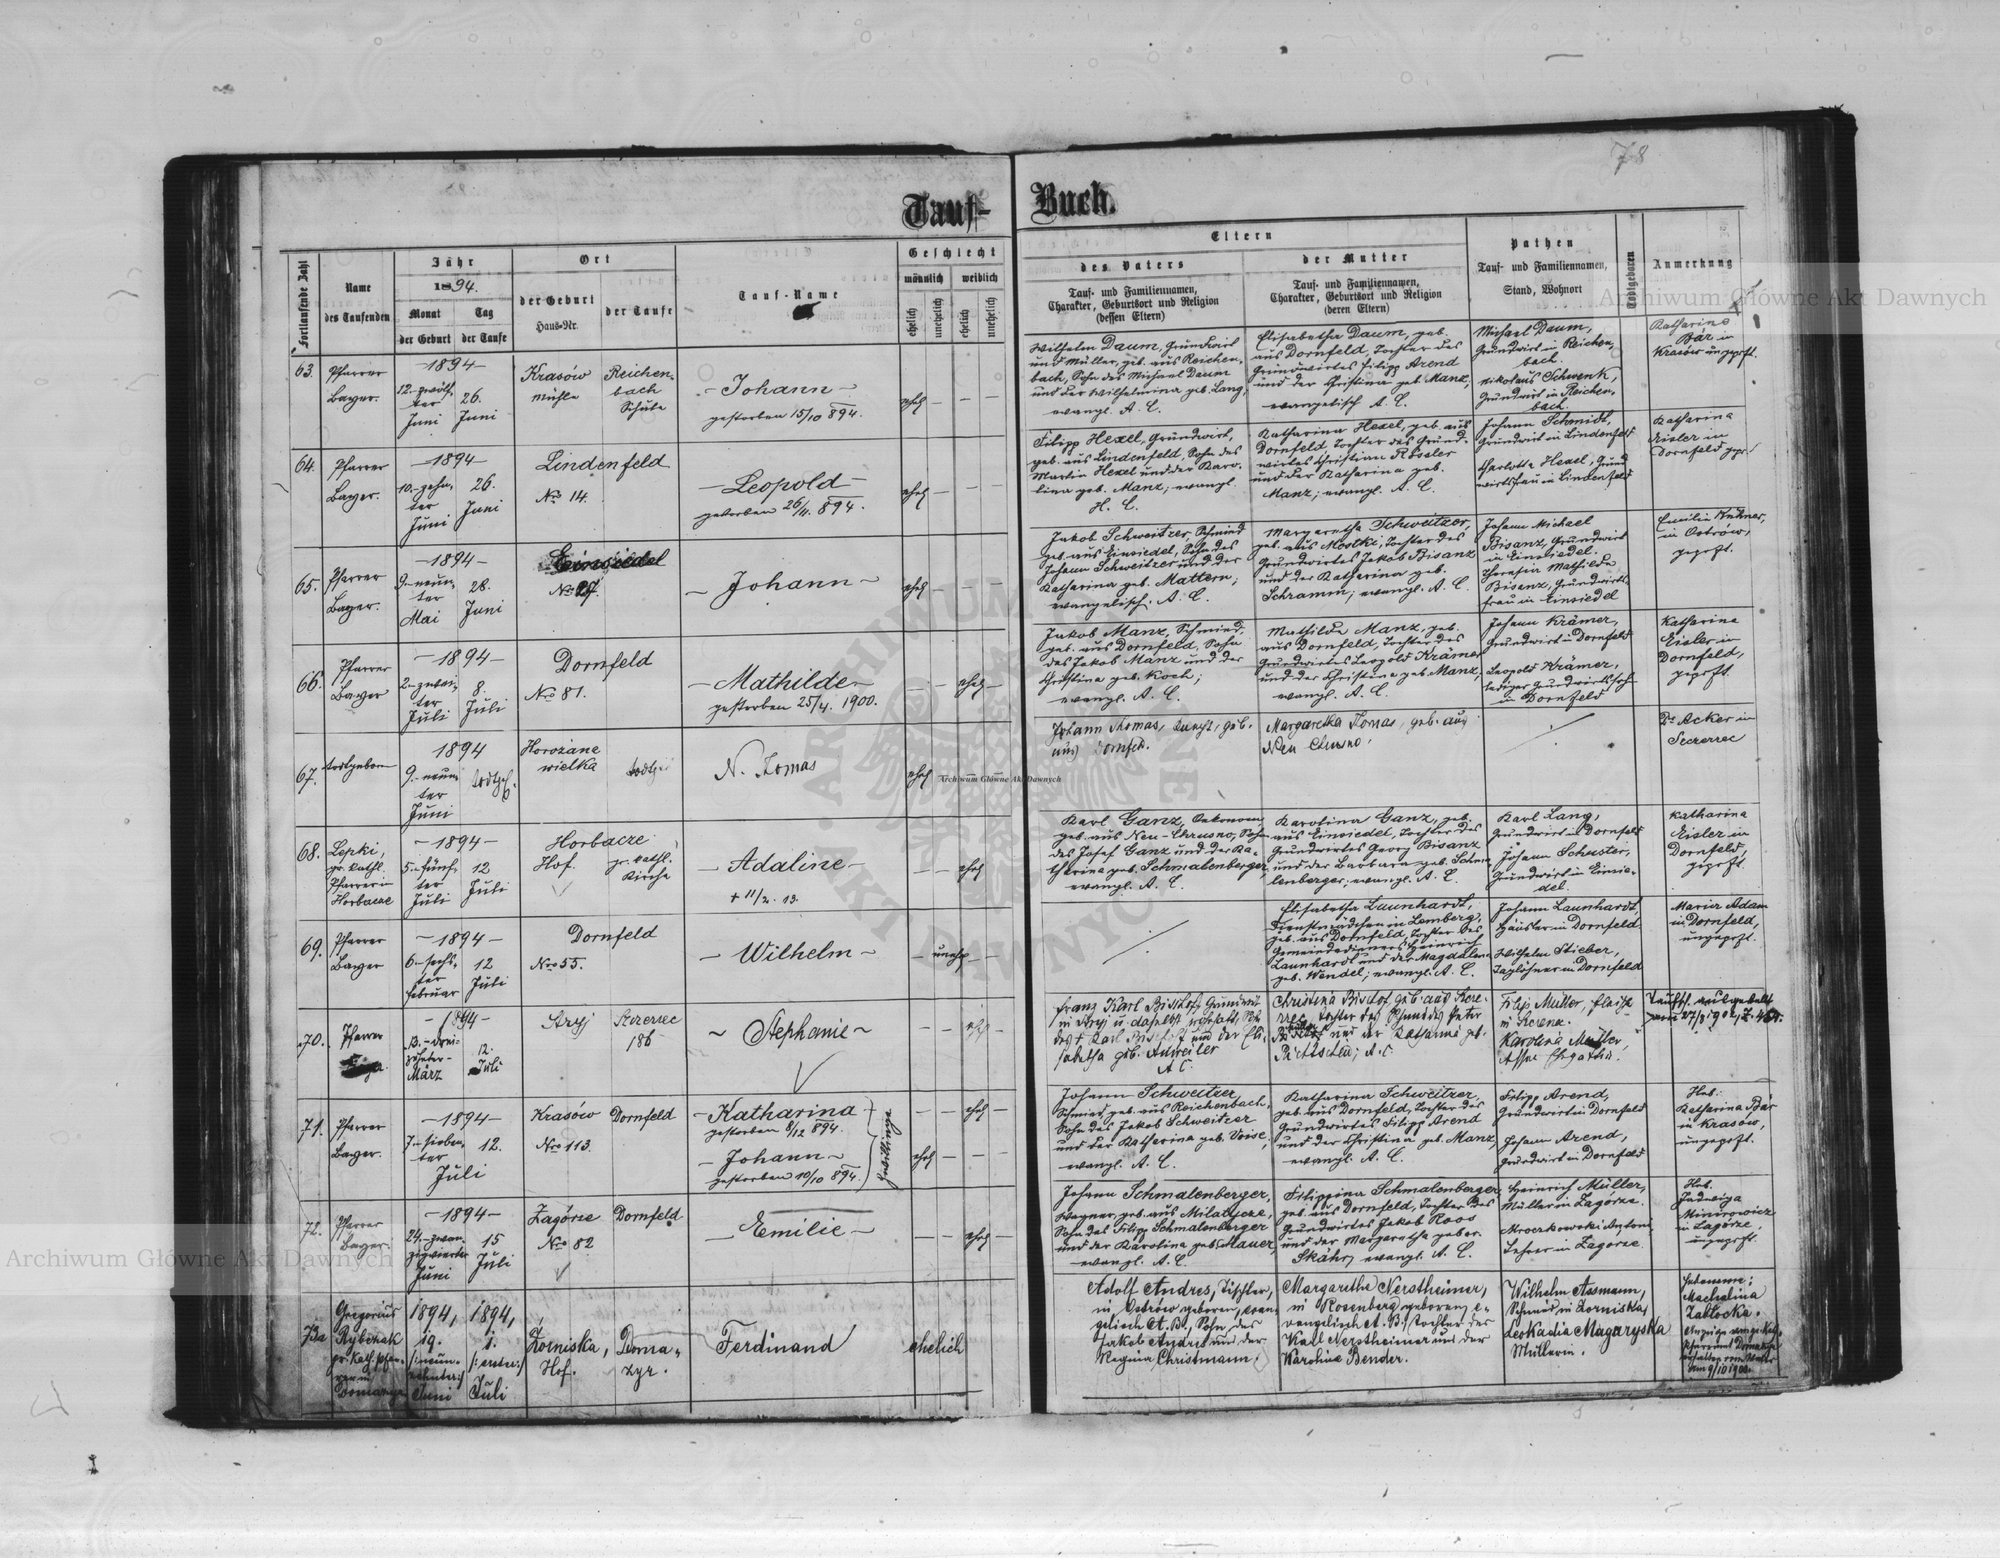 78
Tauf-Buch.
Fortlaufende Zahl
Name
des Taufenden
Jahr
1894.
Monat
der Geburt
Tag
der Taufe
Ort
der Geburt
Haus-Nr.
der Taufe
Tauf-Name
Geschlecht
männlich
weiblich
ehelich
unehelich
ehelich
unehelich
Eltern
des Vaters
Tauf- und Familiennamen,
Charakter, Geburtsort und Religion
(dessen Eltern)
der Mutter
Tauf- und Familiennamen,
Charakter, Geburtsort und Religion
(deren Eltern)
Pathen
Tauf- und Familiennamen,
Stand, Wohnort
Todtgeboren
Anmerkung
63.
Pfarrer
Bayer.
-1894-
12.-zwölf-
ter
Juni
26.
Juni
Krasów
mühle
Reichen-
bach
Schule
-Johann-
gestorben 15/10 894.
ehel
Wilhelm Daum, Grundwirt
und Müller, geb. aus Reichen-
bach, Sohn des Michael Daum
und der Wilhelmina geb. Lang,
evangl. A. C.
Elisabetha Daum, geb.
aus Dornfeld, Tochter des
Grundwirtes Filipp Arend
und der Christina geb. Manz,
evangelisch A. C.
Michael Daum,
Grundwirt in Reichen-
bach.
Nikolaus Schwenk,
Grundwirt in Reichen-
bach.
Katharina
Bär in
Krasów ungeprft.
64.
Pfarrer
Bayer.
-1894-
10.-zehn-
ter
Juni
26.
Juni
Lindenfeld
Nro 14.
-Leopold-
gestorben 26/11. 894.
ehel
Filipp Hexel, Grundwirt,
geb. aus Lindenfeld, Sohn des
Martin Hexel und der Karo-
lina geb. Manz; evangl.
H. C.
Katharina Hexel, geb. aus
Dornfeld, Tochter des Grund-
wirtes Christian Rössler
und der Katharina geb.
Manz; evangl. A. C.
Johann Schmidt,
Grundwirt in Lindenfeld
Charlotte Hexel, Grund
wirtsfrau in Lindenfeld
Katharina
Eisler in
Dornfeld gepr.
65.
Pfarrer
Bayer.
-1894-
9.-neun-
ter
Mai
28.
Juni
Einsiedel
-Johann-
ehel
Jakob Schweitzer, Schmied
geb. aus Einsiedel, Sohn des
Johann Schweitzer und der
Katharina geb. Mattern;
evangelisch. A. C.
Margaretha Schweitzer,
geb. aus Mostki, Tochter des
Grundwirtes Jakob Bisanz
und der Katharina geb.
Schramm; evangl. A. C.
Johann Michael
Bisanz, Grundwirt
in Einsiedel.
Theresia Mathilde
Bisanz, Grundwirts-
frau in Einsiedel
in Ostrów,
geprft.
66.
Pfarrer
Bayer
-1894-
2-zwei-
ter
Juli
8.
Juli
Dornfeld
Nro 81.
-Mathilde-
gestorben 25/4. 1900.
ehel
Jakob Manz, Schmied,
geb. aus Dornfeld, Sohn
des Jakob Manz und der
Christina geb. Koch;
evangl. A. C.
Mathilde Manz, geb.
aus Dornfeld, Tochter des
Grundwirtes Leopold Krämer
und der Christina geb. Manz,
evangl. A. C.
Johann Krämer,
Grundwirt in Dornfeld
Leopold Krämer,
lediger Grundwirtssohn
in Dornfeld
Katharina
Eisler in
Dornfeld,
geprft.
67.
todtgeboren
1894
9.-neun-
ter
Juni
todtgeb.
Horożana
wielka
todtge
N. Thomas
ehel
Johann Thomas, geb.
aus Dornfeld.
Margaretha Thomas, geb. aus
Neu Chrusno.
Dr Acker in
Szczerzec
68.
Lepki,
gr. kathl.
Pfarrer in
Horbacze
-1894-
5.-fünf-
ter
Juli
12
Juli
Horbacze
Hof.
gr. kathl.
Kirche
-Adaline-
+ 11/2. 13.
ehel
Karl Ganz, Oekonom,
geb. aus Neu-Chrusno, Sohn
des Josef Ganz und der Ka-
tharina geb. Schmalenberger
evangl. A. C.
Karolina Ganz, geb.
aus Einsiedel, Tochter des
Grundwirtes Georg Bisanz
und der Barbara geb. Schma-
lenberger; evangl. A. C.
Karl Lang,
Grundwirt in Dornfeld
Johann Schuster,
Grundwirt in Einsie-
del.
Katharina
Eisler in
Dornfeld,
geprft
69.
Pfarrer
Bayer
-1894-
6-sechs-
ter
Februar
12
Juli
Dornfeld
Nro 55.
-Wilhelm-
unehl
Elisabetha Launhardt,
Dienstmädchen in Lemberg,
geb. aus Dornfeld, Tochter des
Gemeindedieners Heinrich
Launhardt und der Magdalena
geb. Wendel; evangl. A. C.
Johann Launhardt,
Häusler in Dornfeld.
Wilhelm Stieber,
Taglöhner in Dornfeld
Maria Adam
in Dornfeld,
ungeprft.
70.
Pfarrer
-1894-
13.-drei-
zehnter-
März
12.
Juli
Stryj
Szczerzec
186
~Stephanie~
Franz Karl Bischof,
in Stryj
Karl Bischof und der Eli-
sabetha geb. Anweiler
A C.
Christina Bischof, geb. aus
Tochter des Peter
und der Katharina geb.
A. C.
Filip Müller,
Karolina Müller,
71.
Pfarrer
Bayer.
-1894-
7-sieben-
ter
Juli
12.
Krasów
Nro 113.
Dornfeld
-Katharina-
gestorben 8/12 894.
-Johann-
gestorben 10/10 894.
Zwillinge
ehel
ehel
Johann Schweitzer,
Schmied, geb. aus Reichenbach,
Sohn des Jakob Schweitzer
und der Katharina geb. Voise,
evangl. A. C.
Katharina Schweitzer,
geb. aus Dornfeld, Tochter des
Grundwirtes Filipp Arend
und der Christina geb. Manz,
evangl. A. C.
Filipp Arend,
Grundwirt in Dornfeld
Johann Arend,
Grundwirt in Dornfeld
Heb.:
Katharina Bär
in Krasów,
ungeprft.
72.
Pfarrer
Bayer
-1894-
24.-zwan-
zigvierte
Juni
15
Juli
Zagórze
Nro 82
Dornfeld
-Emilie-
ehel
Johann Schmalenberger,
Wagner, geb. aus Milatycze,
Sohn des Filipp Schmalenberger
und der Karolina geb. Mauer,
evangl. A. C.
Filippina Schmalenberger,
geb. aus Dornfeld, Tochter des
Grundwirtes Jakob Roos
und der Margaretha gebor.
Skähr, evangl. A. C.
Heinrich Müller,
Müller in Zagórze.
Mroczkowski Antoni
Lehrer in Zagórze.
Heb.
Jadwiga
in Zagórze,
ungeprft.
73a
Gregorius
Rybczak
gr. Kath. Pfar-
rer in
Domazyr
1894,
19.
/:neun-
zehnter:/
Juni
1894,
1.
/:erster:/
Juli
Zorniska,
Hof.
Doma-
zyr.
Ferdinand
ehelich
Adolf Andres, Tischler,
in Ostrów geboren, evan-
gelisch A. B., Sohn des
Jakob Andres und der
Regina Christmann.
Margarethe Nerstheimer,
in Rosenberg geboren, e-
vangelisch A. B., Tochter des
Karl Nerstheimer und der
Karolina Bender.
Wilhelm Assmann,
Schmied in Zorniska,
Leokadia Magaryska
Müllerin.
Hebamme:
Machalina
Zabłocka.
am 9/10 1900
Archiwum Główne Akt Dawnych
Archiwum Główne Akt Dawnych
Archiwum Główne Akt Dawnych